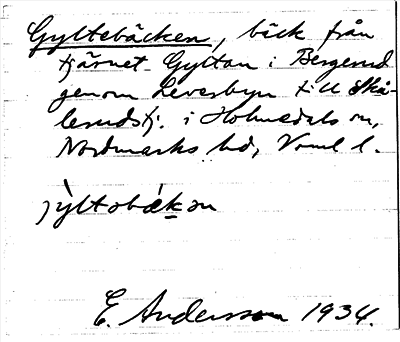 Gyltebäcken, bäck från
tjärnet Gyltan i Bergerud
genom Leverbyn till Skå-
lerudstj. i Holmedals sn,
Nordmarks hd, Vrml l.
jỳltobǽkən
E. Andersson 1934.